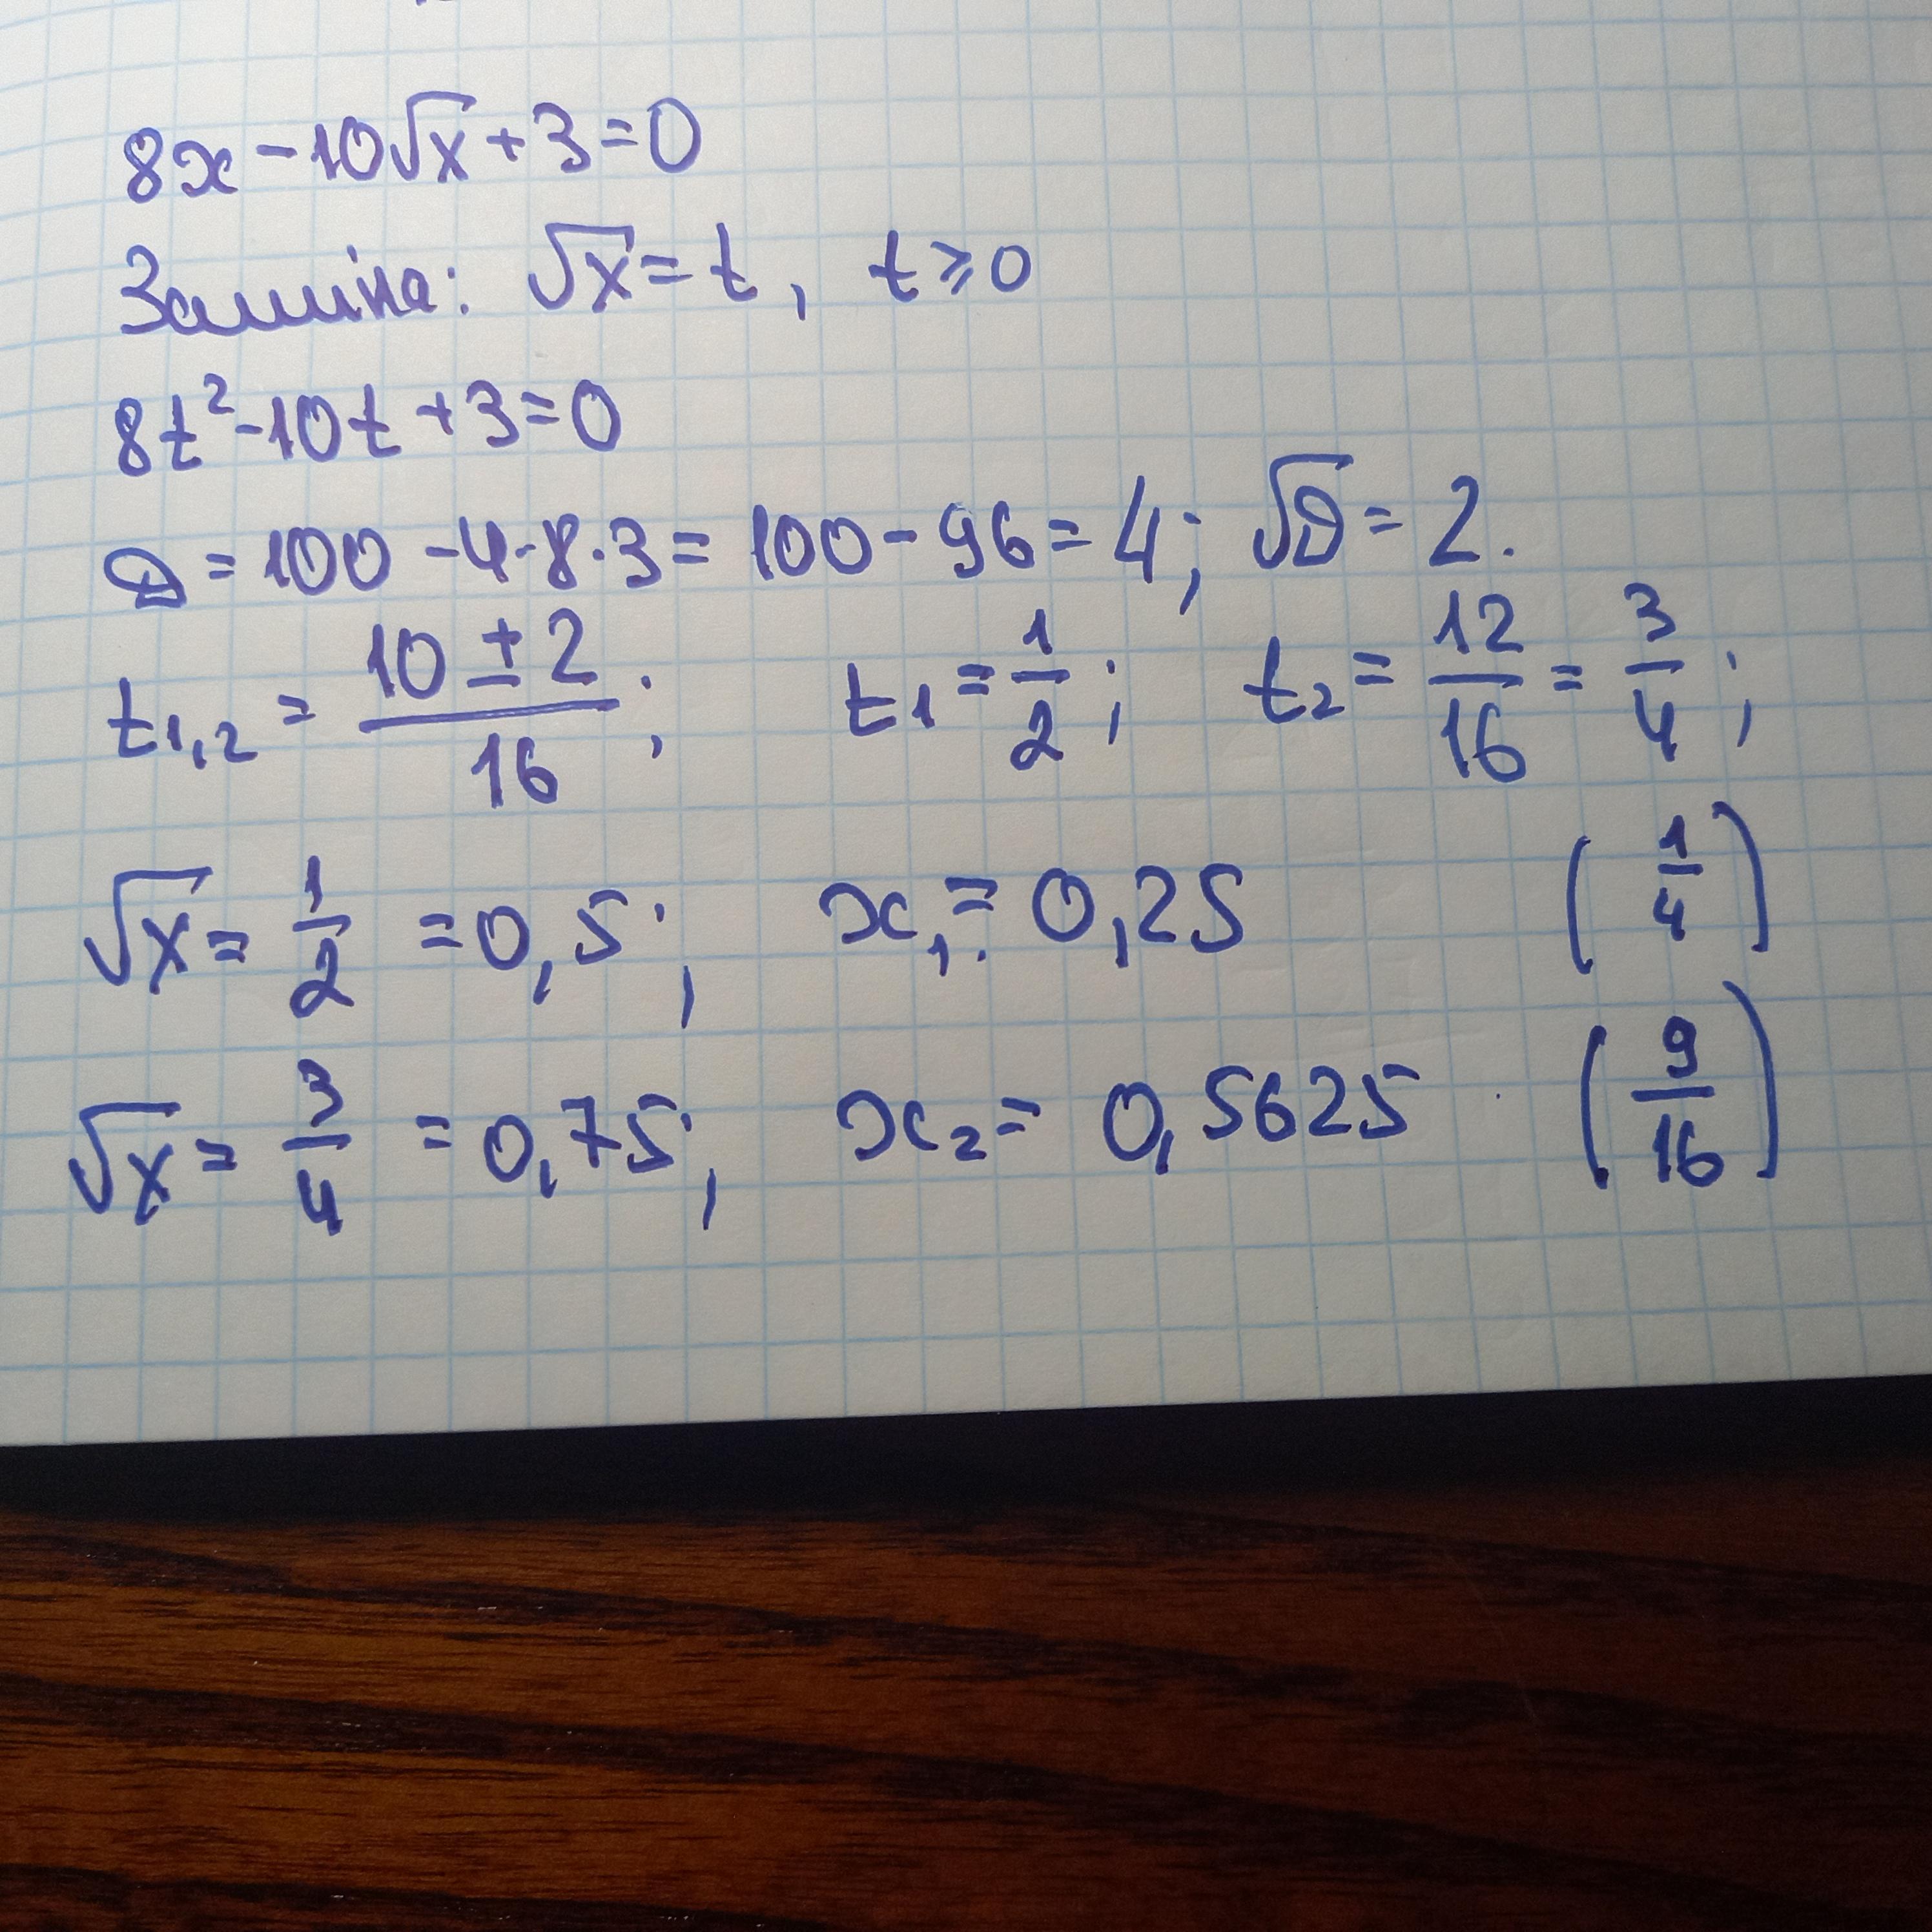 8x - 10√x + 3 = 0
Заміна: √x = t, t ⩾ 0
8t² - 10t + 3 = 0
D = 100 - 4·8·3 = 100 - 96 = 4; √D = 2.
t₁,₂ = (10 ± 2)/16; t₁ = 1/2; t₂ = 12/16 = 3/4;
√x = 1/2 = 0,5; x₁ = 0,25 (1/4)
√x = 3/4 = 0,75; x₂ = 0,5625 (9/16)